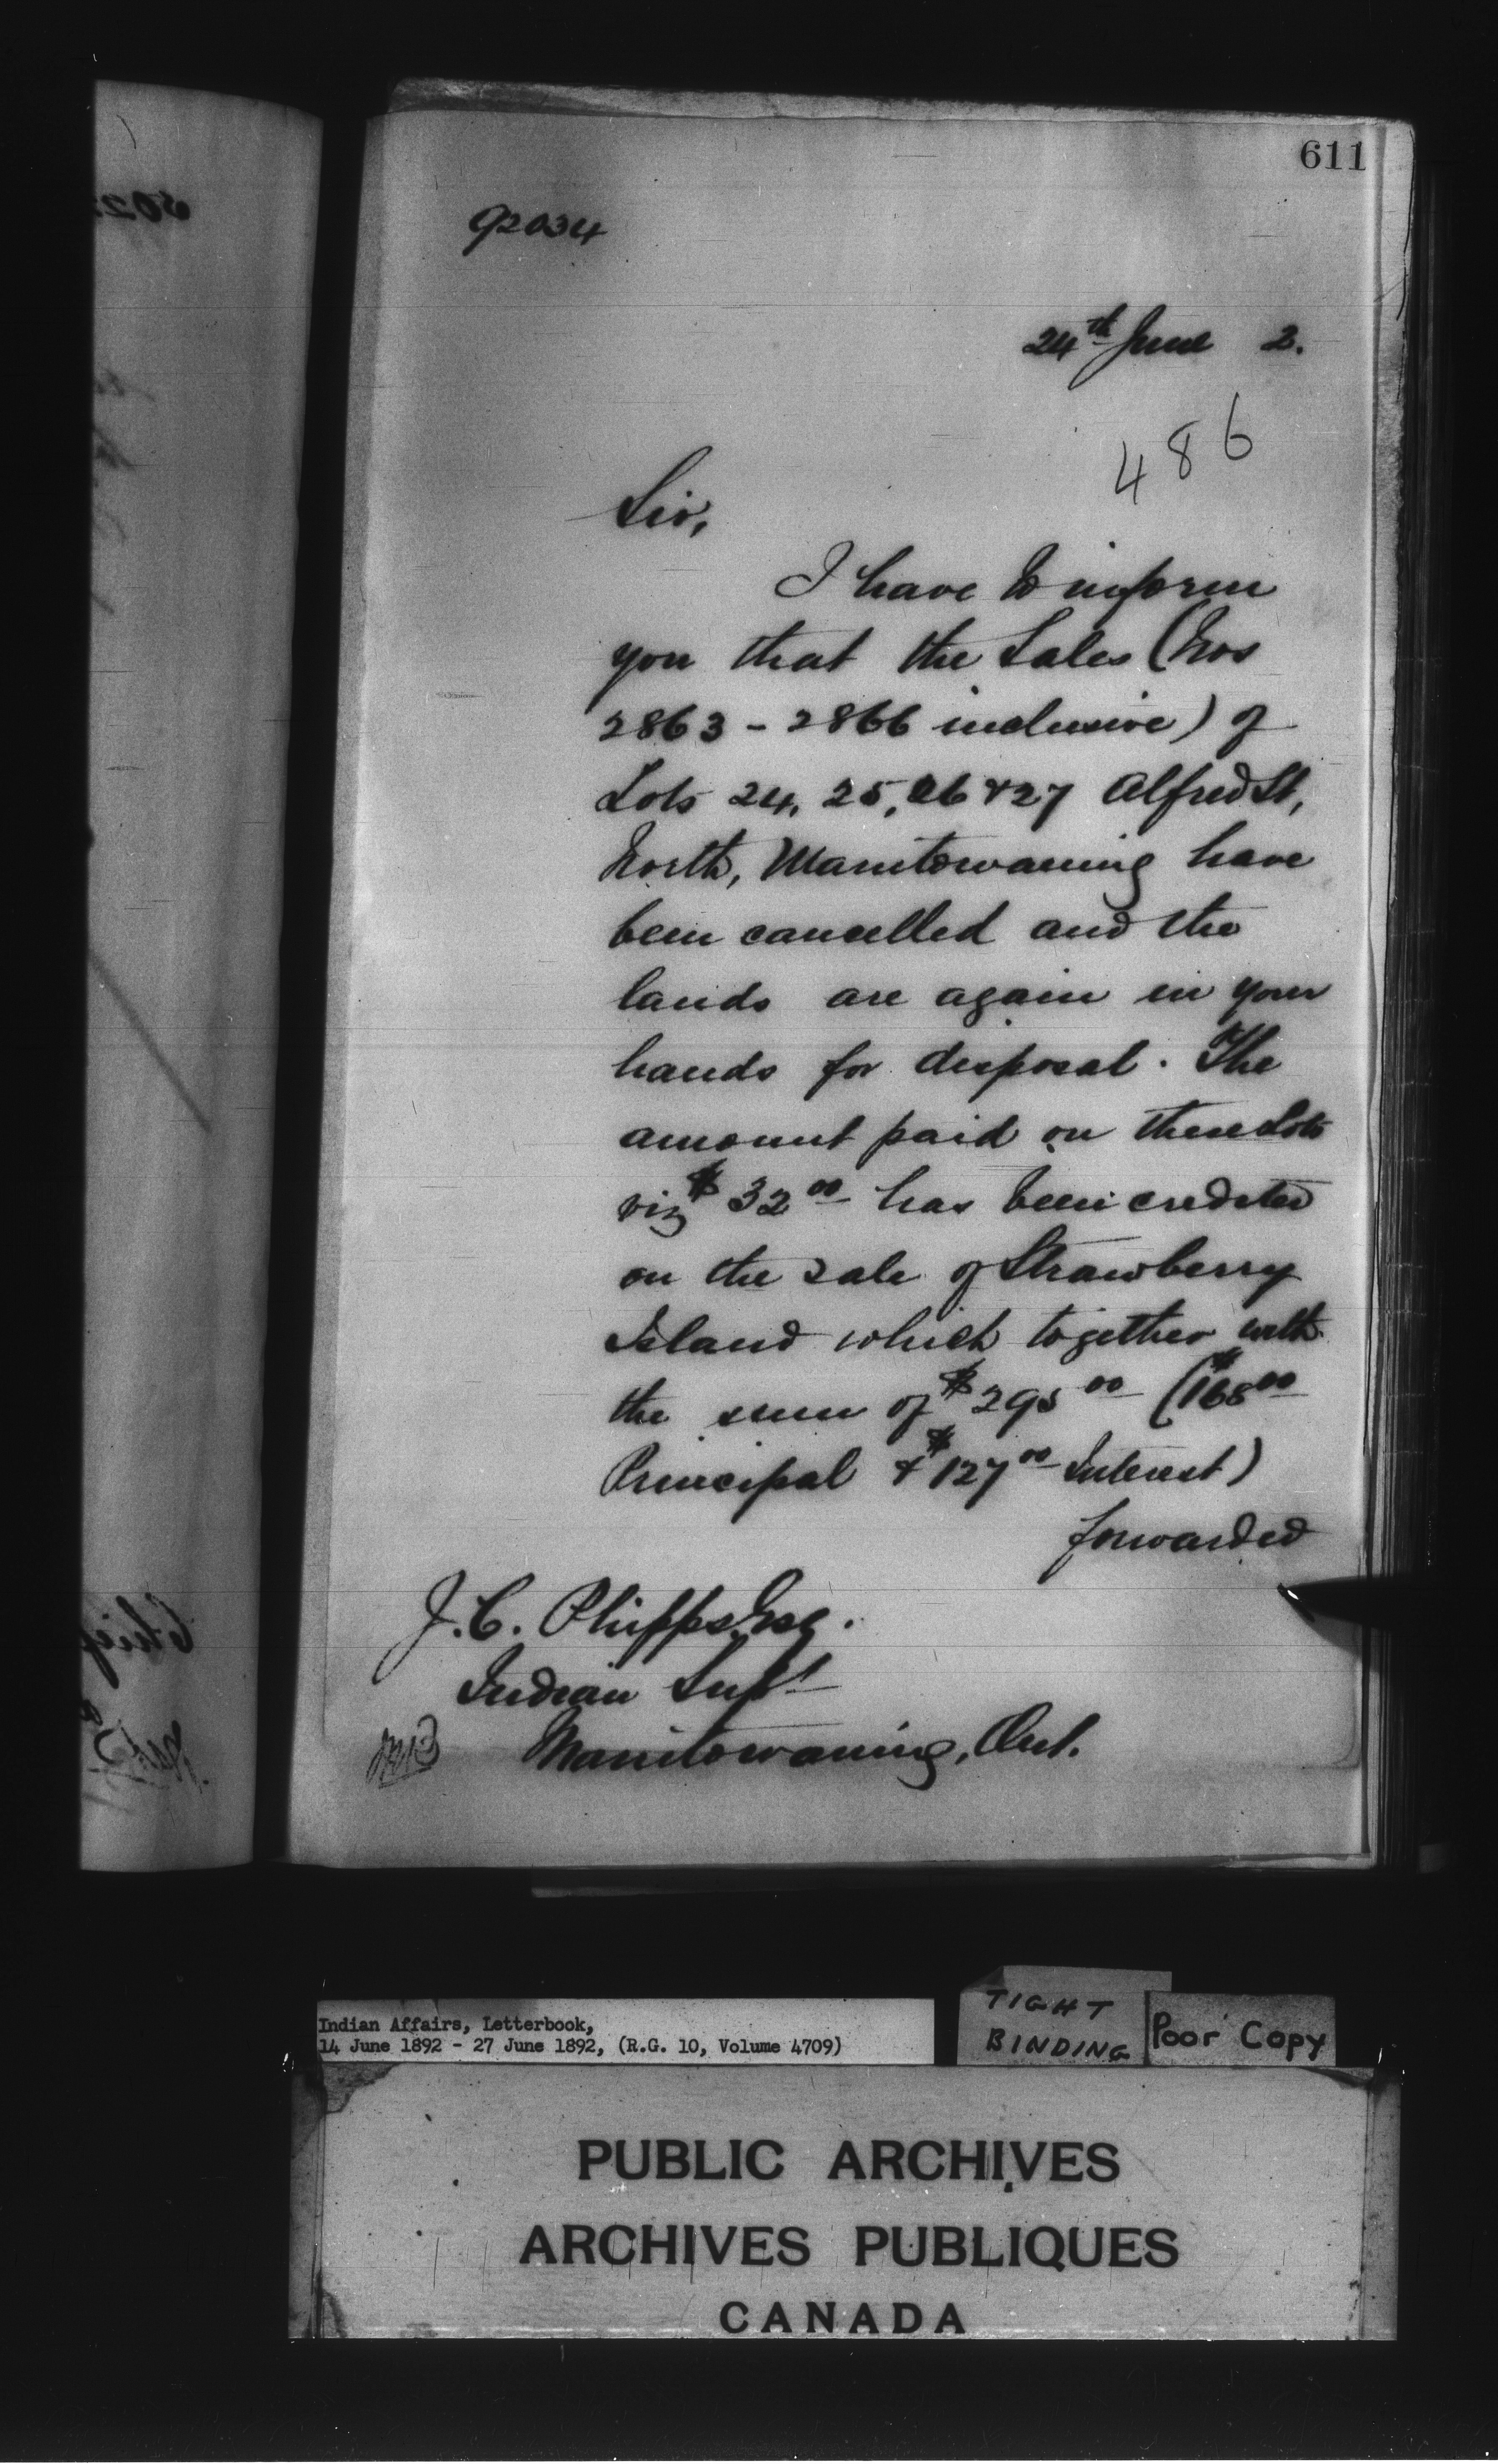 611
92034
24th June 2.
486
Sir,
I have to inform
you that the Sales (Nos
2863 - 2866 inclusive) of
Lots 24, 25, 26 & 27 Alfred St,
North, Manitowaning have
been cancelled and the
lands are again in your
hands for disposal. The
amount paid on these Lots
viz $32 00 has been credited
on the sale of Strawberry
Island which together with
the sum of $295 00 ($168 00
Principal & $127 00 Interest)
forwarded
J.C. Phipps Esq.
Indian Supt
Manitowaning, Ont.
Indian Affairs, Letterbook,
14 June 1892 - 27 June 1892, (R.G. 10, Volume 4709)
TIGHT
BINDING
Poor Copy
PUBLIC ARCHIVES
ARCHIVES PUBLIQUES
CANADA